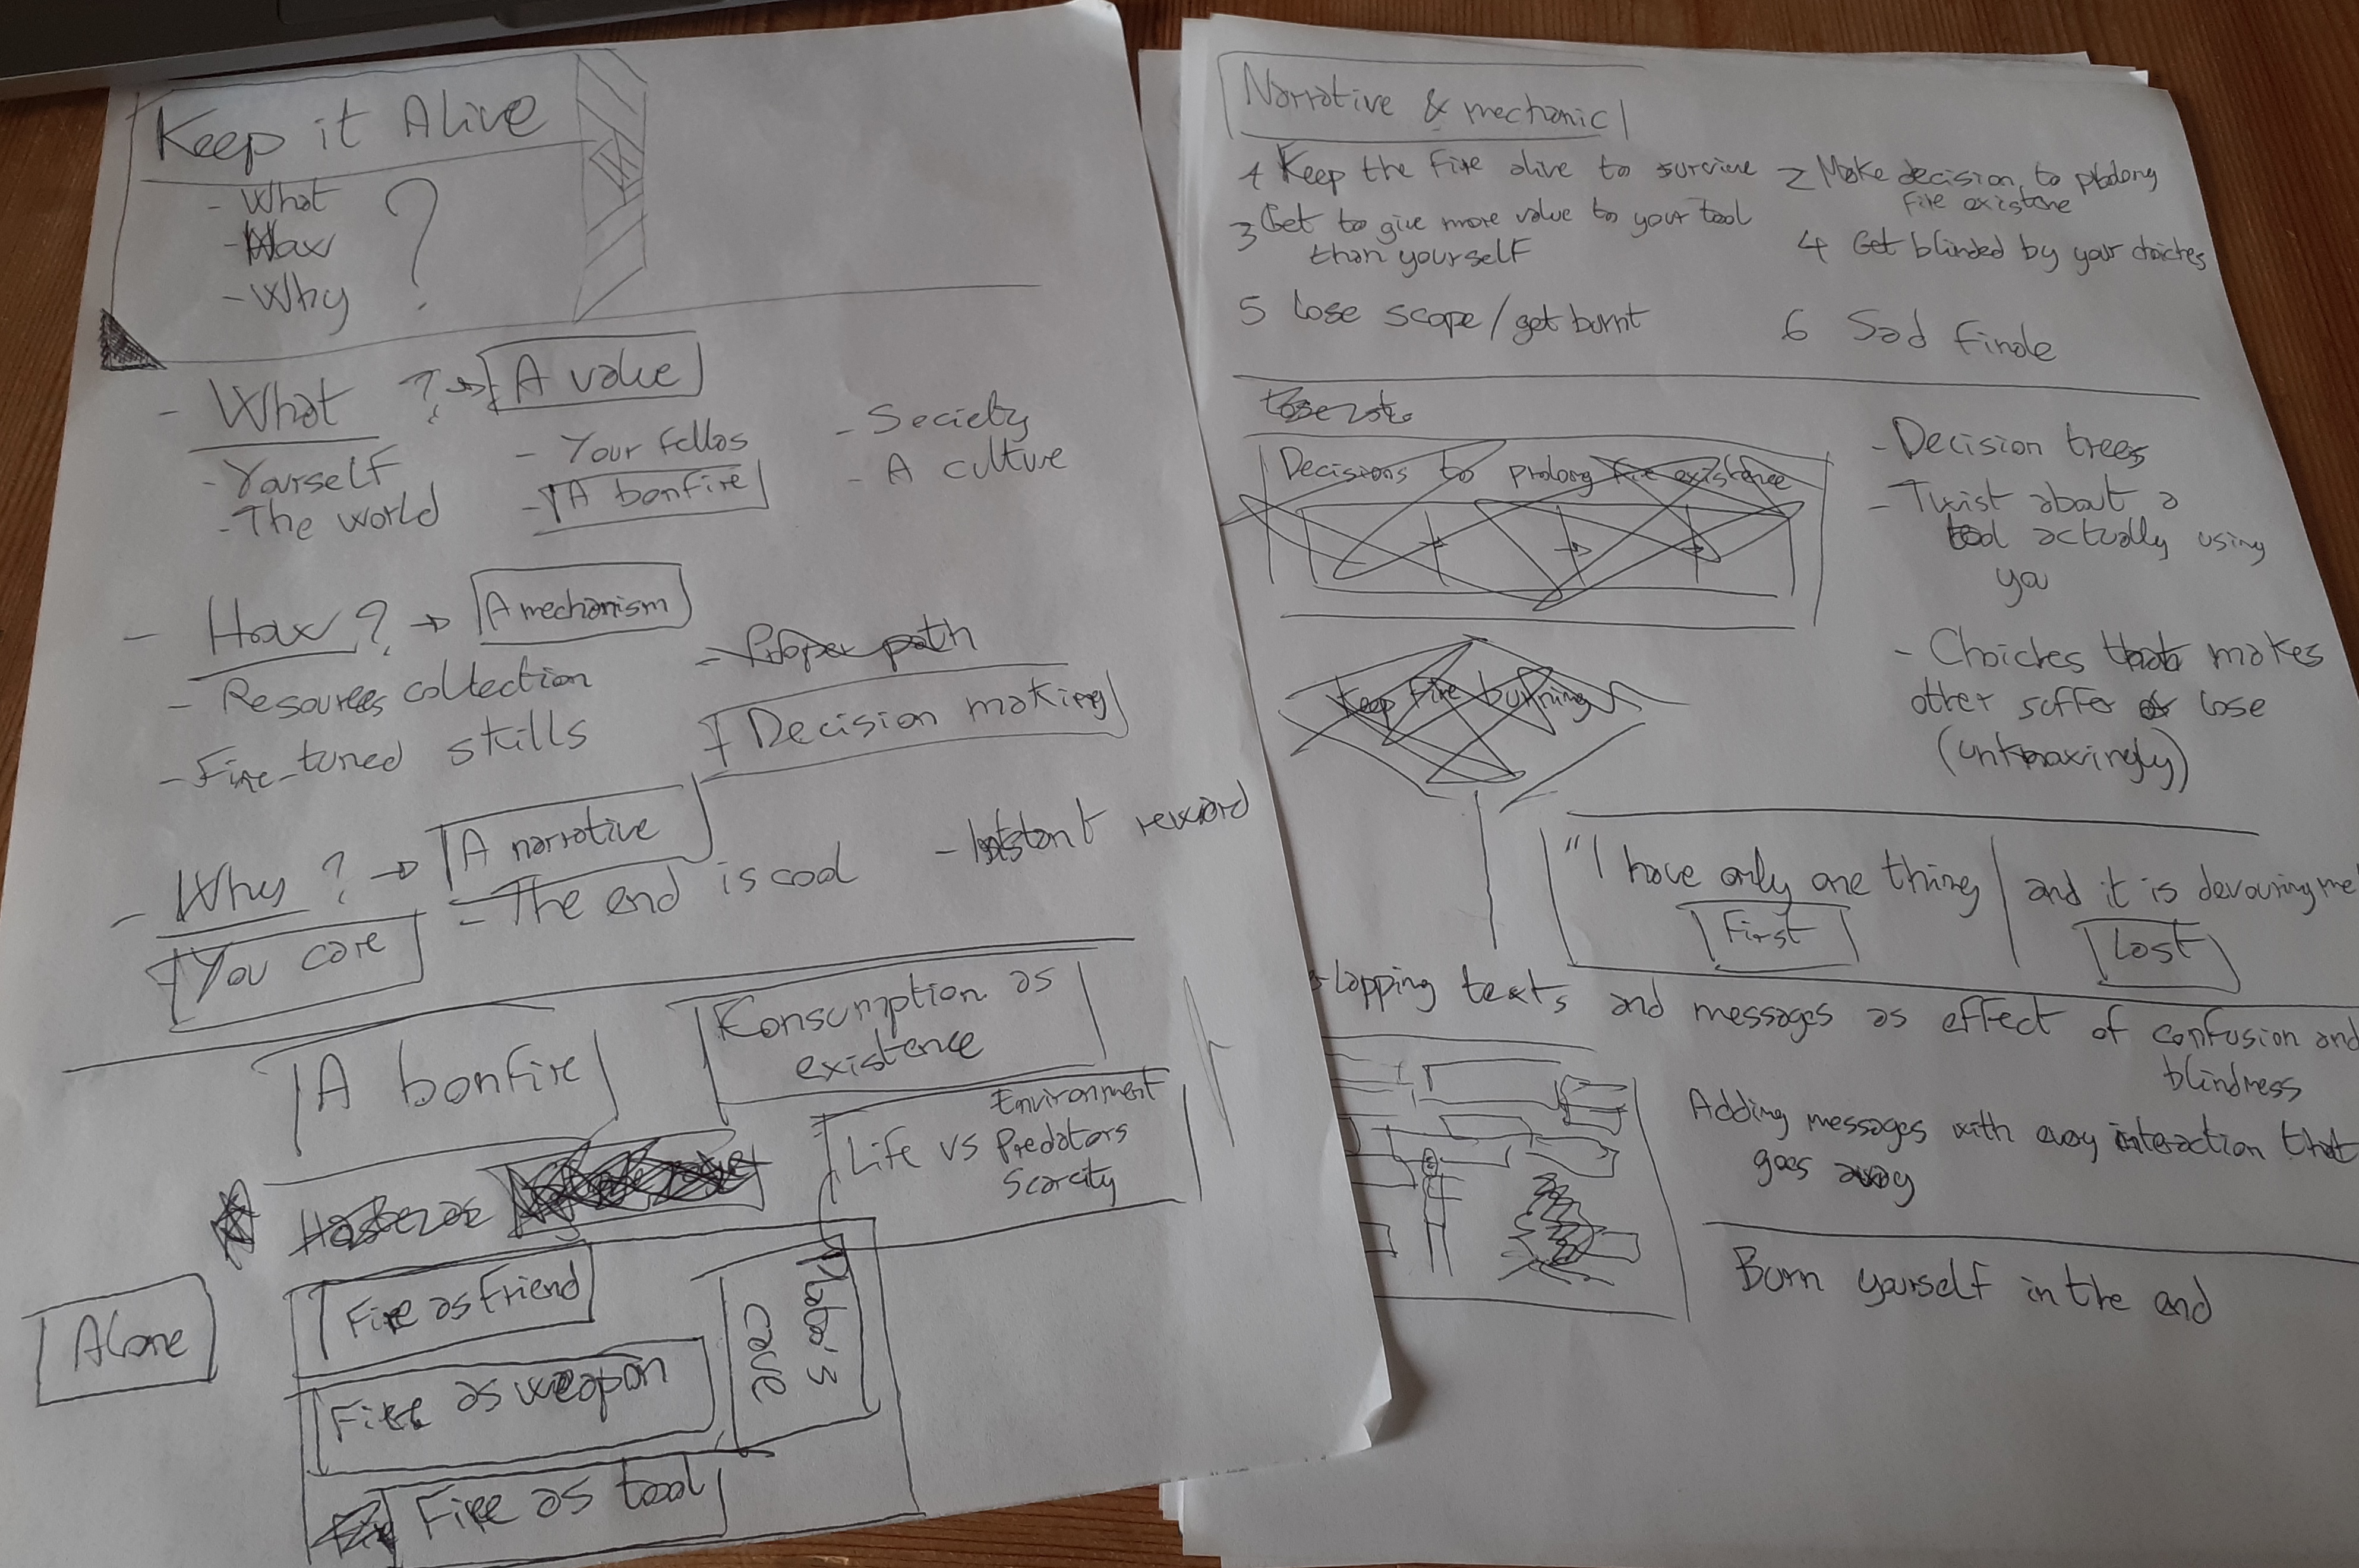 Keep it Alive
- What
- How
- Why
?
- What ? → A value
- Yourself
- The world
- Your fellos
- A bonfire
- Society
- A culture
- How ? → A mechanism
- Resources collection
- Fine-tuned skills
- Proper path
- Decision making
- Why ? → A narrative
- You care
- The end is cool
- Instant reward
A bonfire
Konsumption as
existence
Life vs
Environment
Predators
Scarcity
Alone
Fire as Friend
Fire as weapon
Fire as tool
Plato's
cave
Narrative & mechanic
1 Keep the fire alive to survive
2 Make decision to prolong
fire existence
3 Get to give more value to your tool
than yourself
4 Get blinded by your choiches
5 Lose scope/get burnt
6 Sad finale
Decisions to prolong fire existence
Keep fire burning
- Decision trees
- Twist about a
tool actually using
you
- Choiches that makes
other suffer or lose
(unknowingly)
"I have only one thing
First
and it is devouring me
Last
lapping texts and messages as effect of confusion and
blindness
Adding messages with every interaction that
goes away
Burn yourself in the end